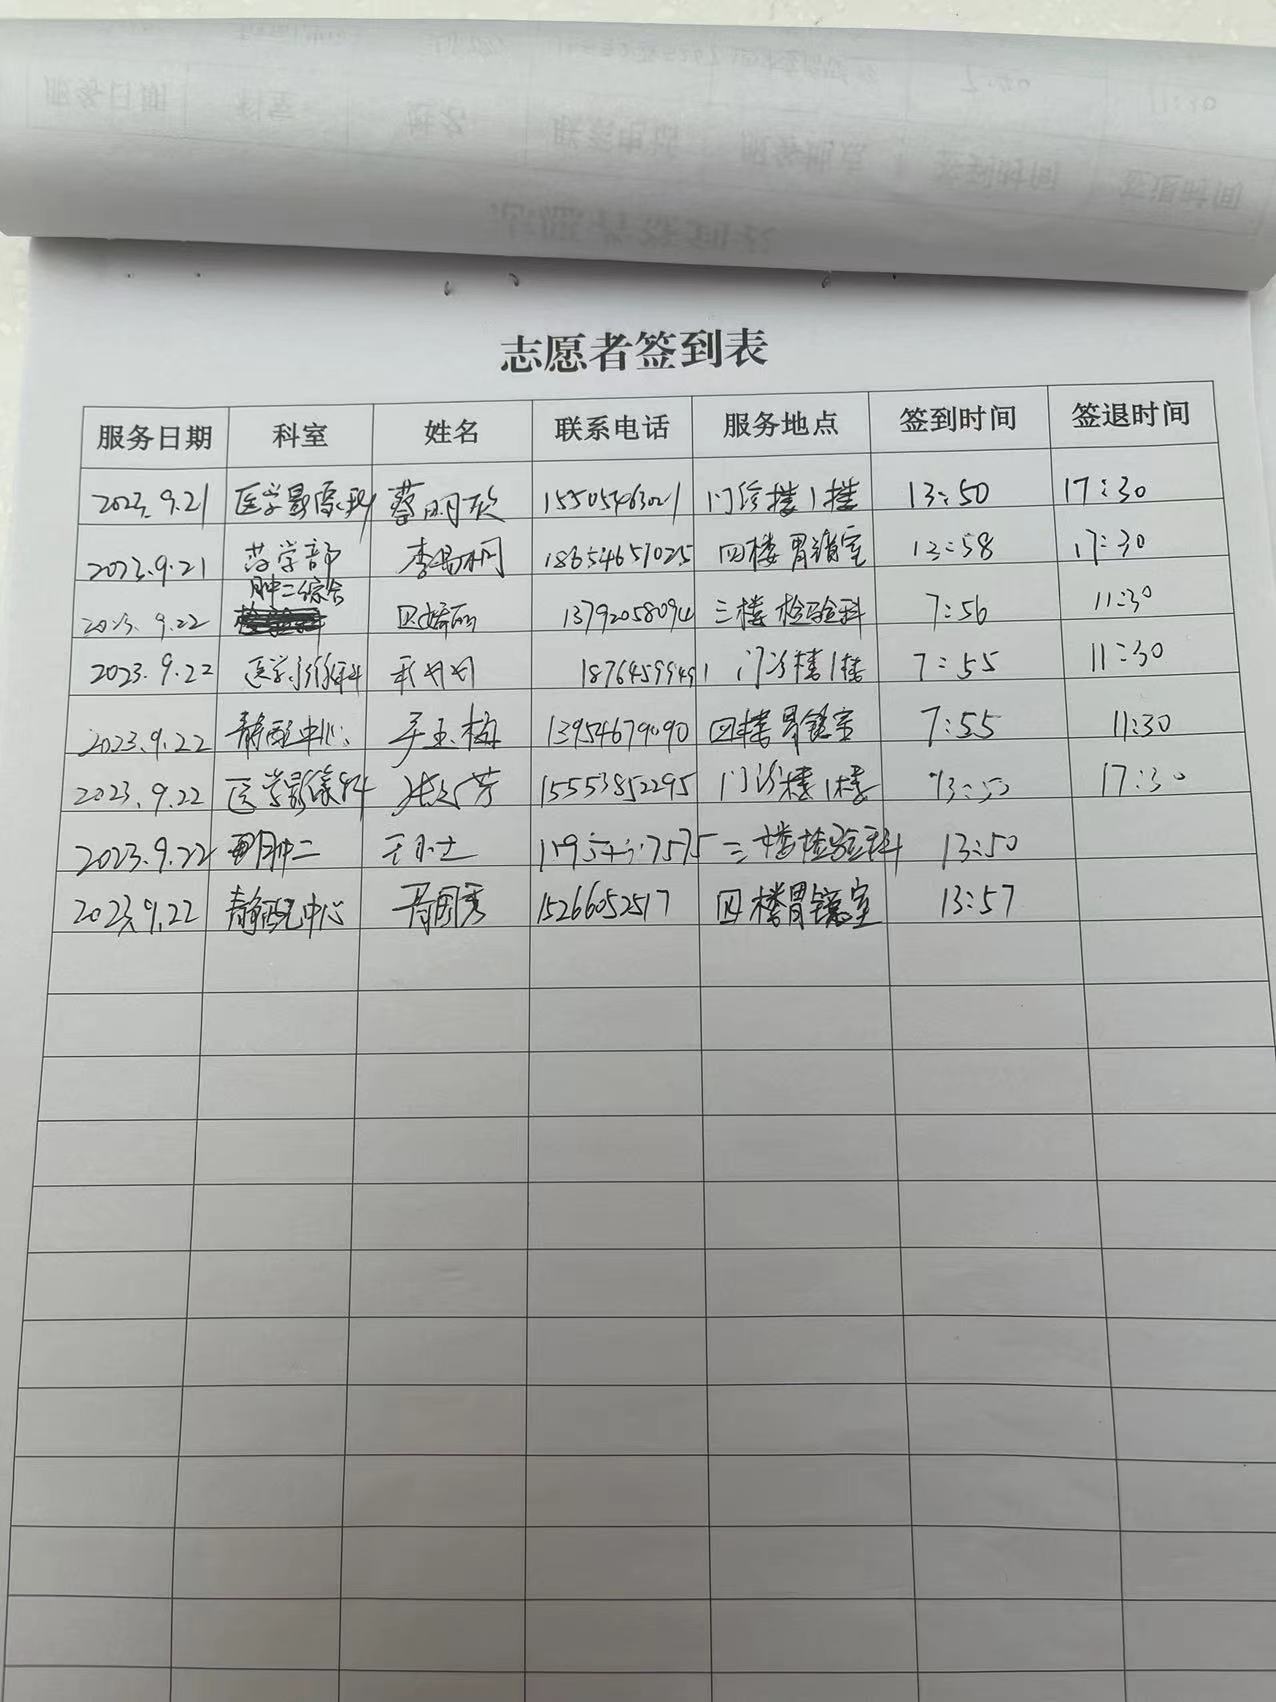 志愿者签到表
服务日期 科室 姓名 联系电话 服务地点 签到时间 签退时间
2023.9.21 医学影像科 蔡明欣 15505463021 门诊楼1楼 13:50 17:30
2023.9.21 药学部 18654657025 四楼胃镜室 13:58 17:30
肿二综合
2023.9.22 13792058094 三楼检验科 7:56 11:30
2023.9.22 医学影像科 18764599491 门诊楼1楼 7:55 11:30
2023.9.22 静配中心 13954679090 四楼胃镜室 7:55 11:30
2023.9.22 医学影像科 15553852295 门诊楼1楼 13:50 17:30
2023.9.22 肿二 三楼检验科 13:50
2023.9.22 静配中心 15266052517 四楼胃镜室 13:57